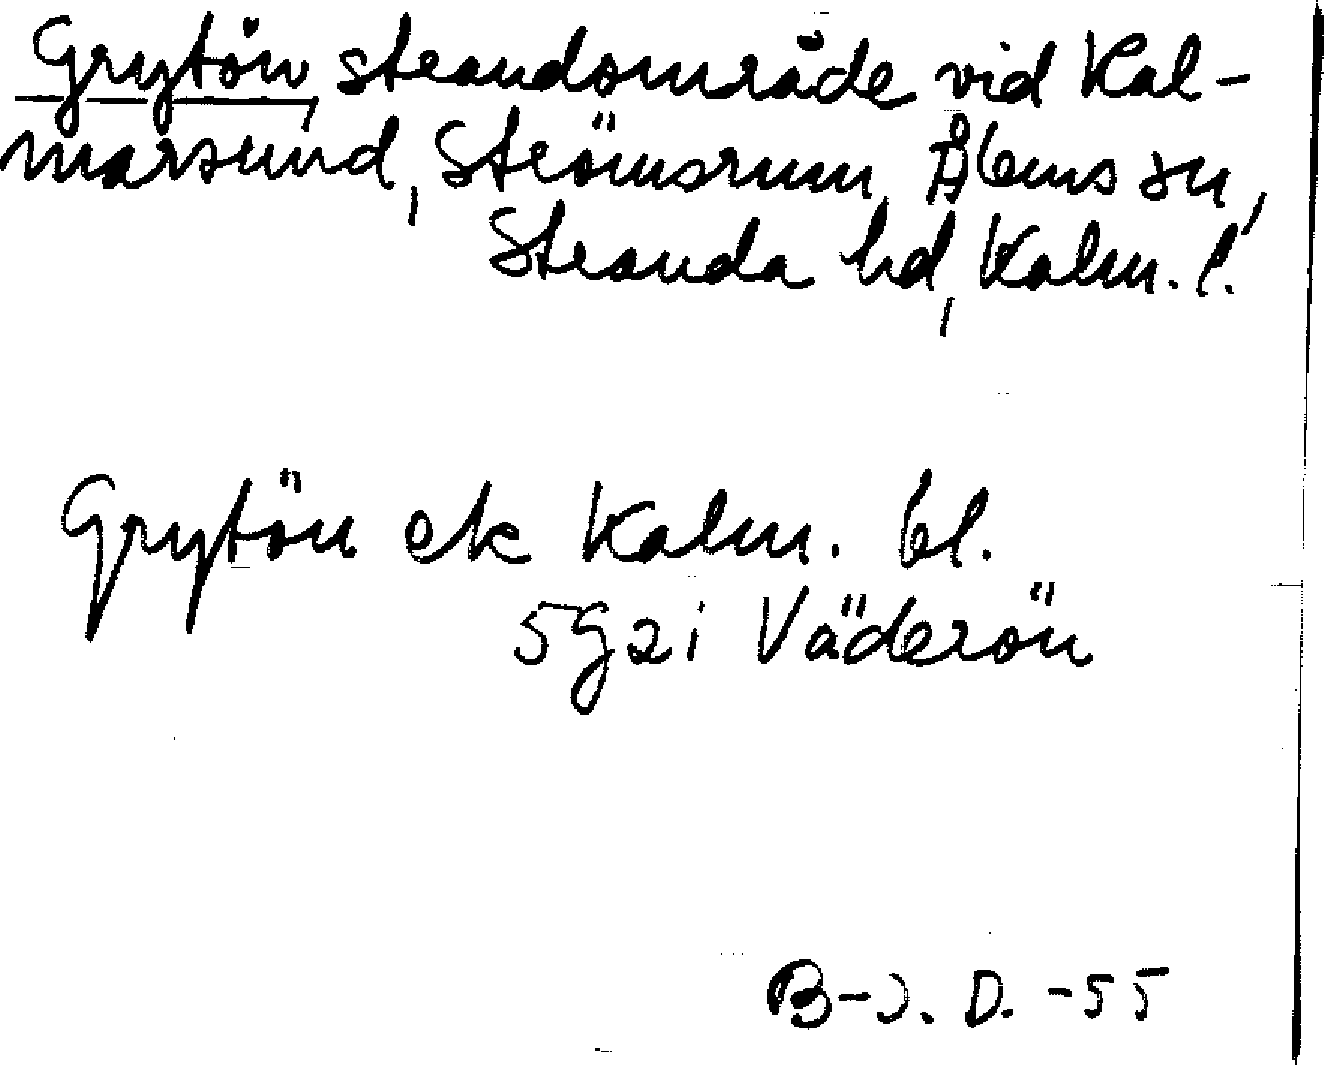 Grytön, strandområde vid Kal-
marsund, Strömsrum, Ålems sn,
Stranda hd, Kalm. l.
Grytön ek Kalm. bl.
5g2i Väderön
B-J. D. -55